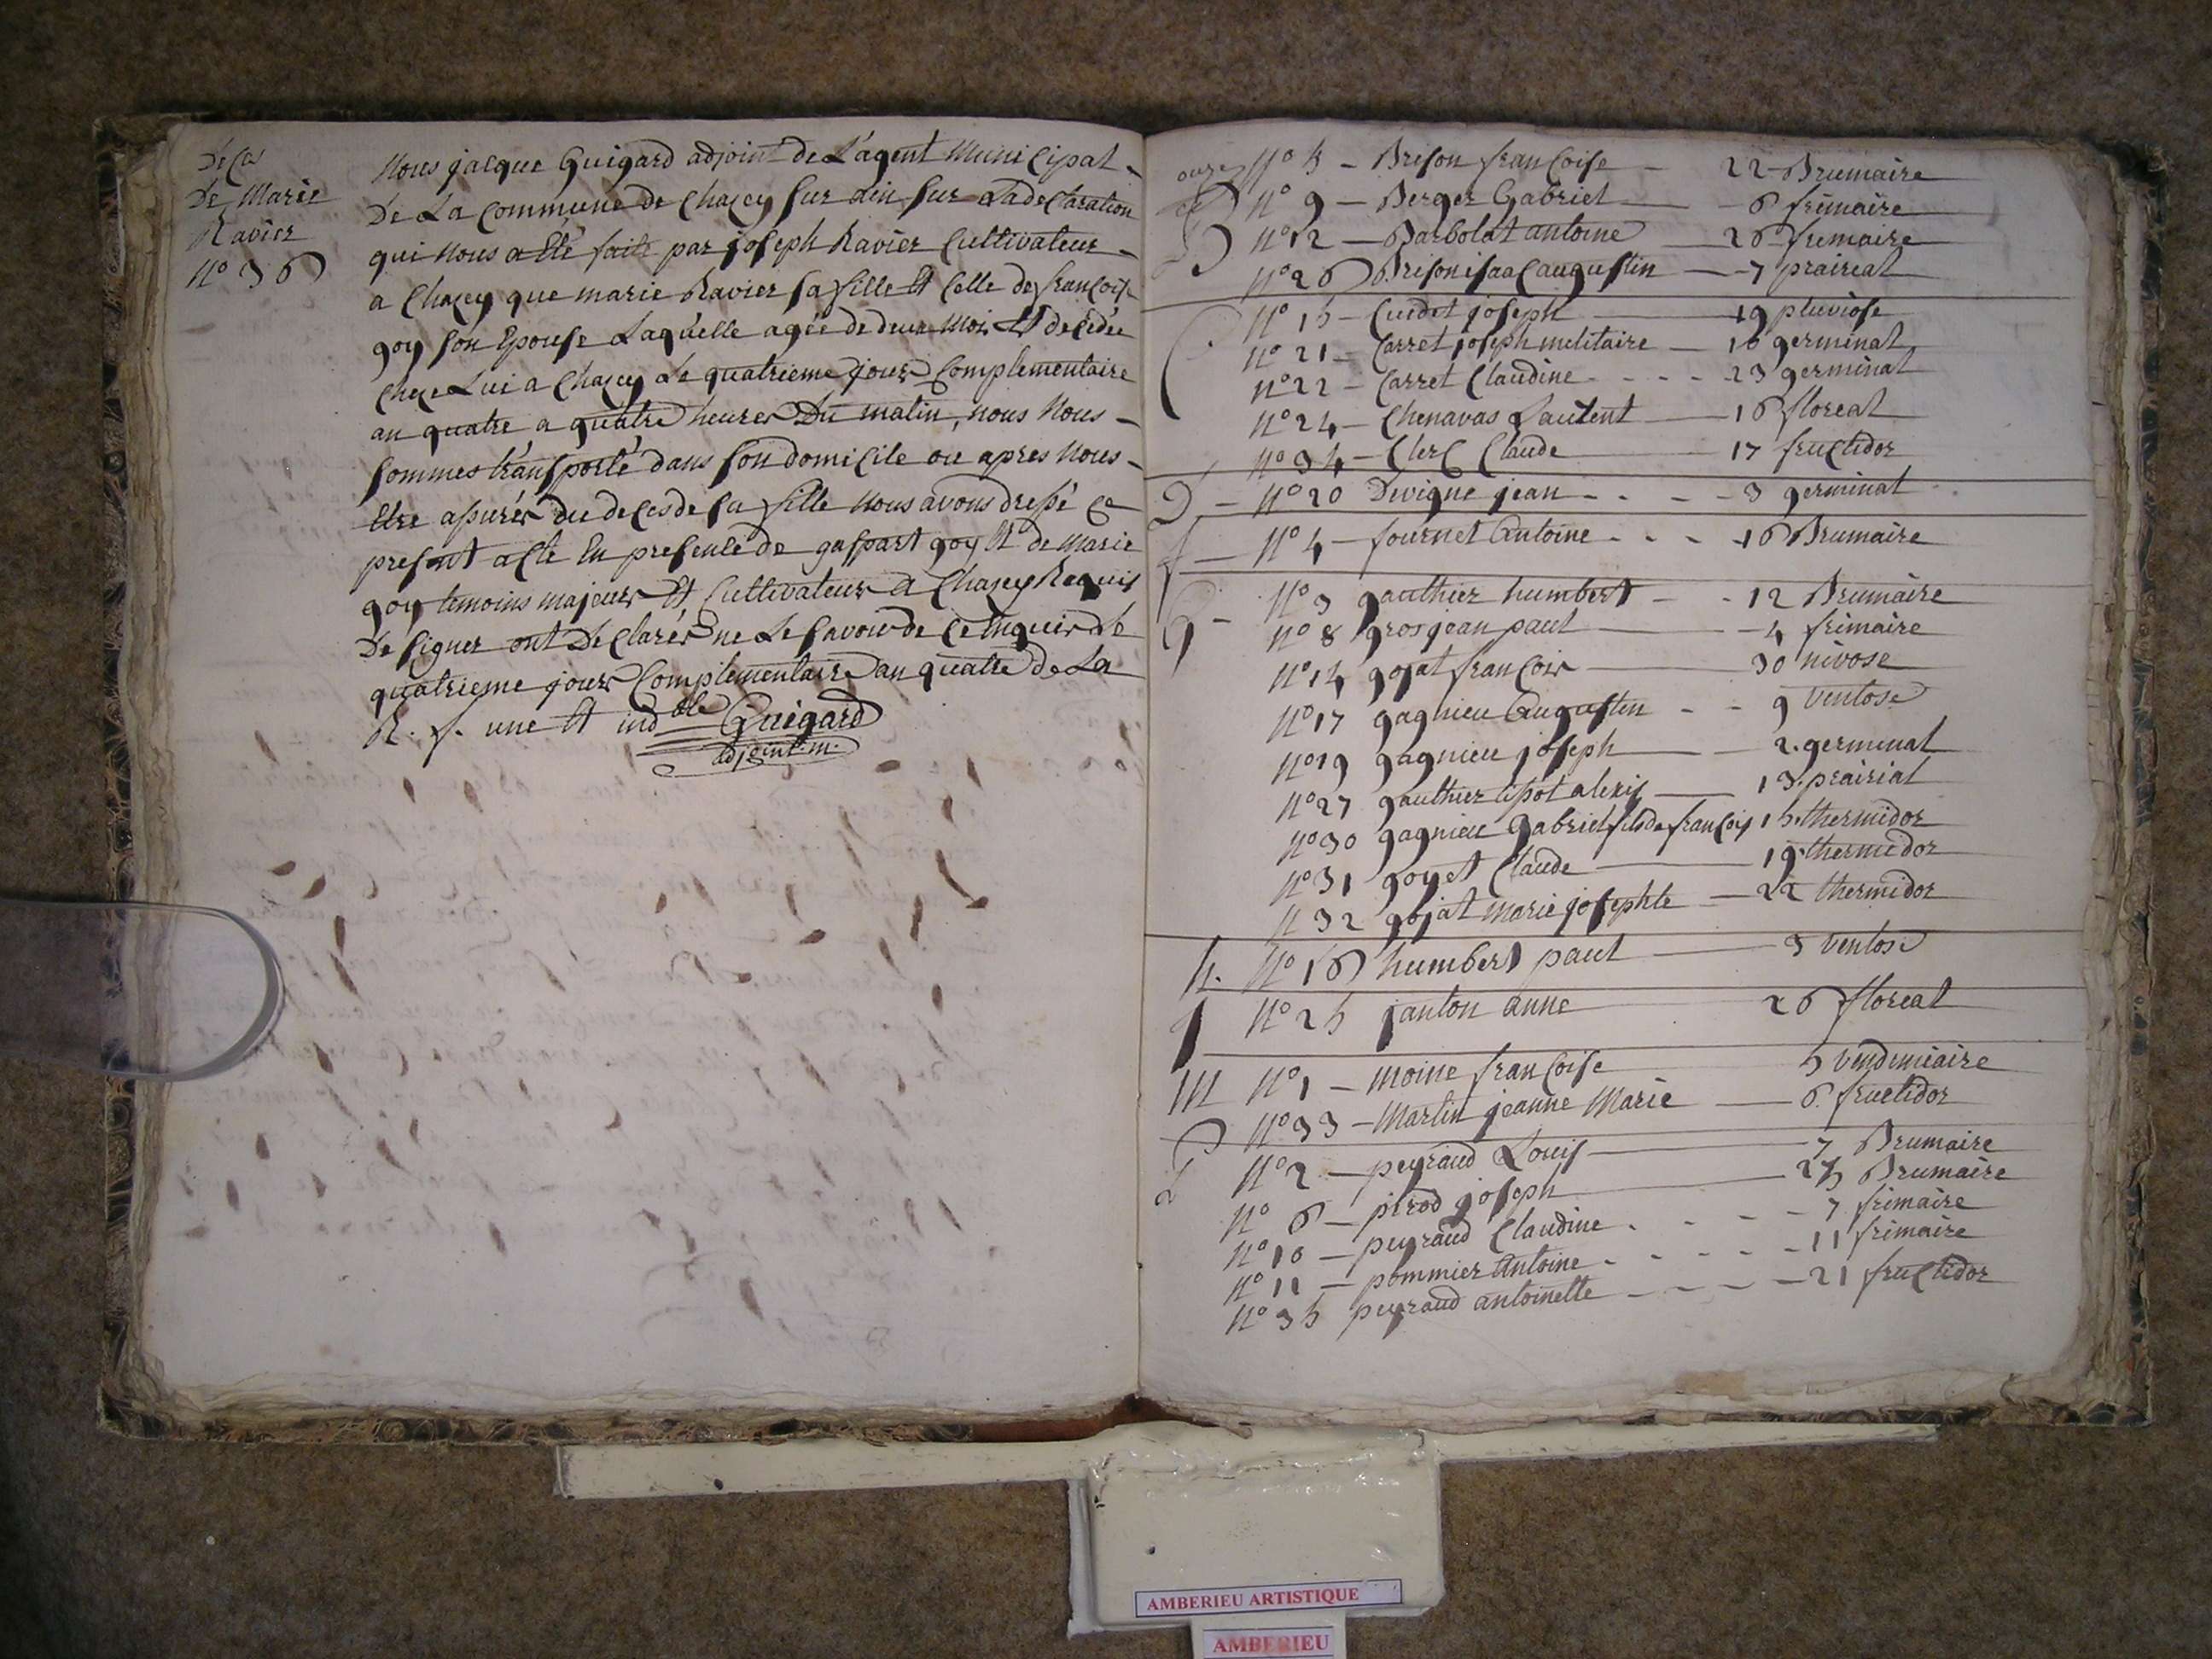 Décès
De Marie
Ravier
N° 36
Nous jacque Guigard adjoint de L'agent Municipal
De La Commune de Chazey Sur ain Sur La declaration
qui Nous a été faite par joseph Ravier Cultivateur
a Chazey que marie Ravier sa fille Et Celle de françoise
goy son Epouse Laquelle agée de deux Mois Est décédée
Cheze Lui a Chazey Le quatrieme jour Complementaire
an quatre a quatre heures Du matin, nous Nous
sommes transporté dans son domicile ou apres Nous
Etre assurés du deces de sa fille Nous avons dressé Ce
present acte En presence de gaspart goy Et de Marie
goy temoins majeurs Et Cultivateurs a Chazey Requis
De signer ont Declarés ne Le savoir de Ce Enquis le
quatrieme jour Complementaire an quatre de La
R. f. une Et ind ble Guigard
adjoint. m.
N° 5 - Brison françoise - 22 Brumaire
N° 9 - Berger Gabriel - 6 frimaire
B N° 12 - Barbolat antoine 26 frimaire
N° 26 Brison isaac augustin - 7 praireal
C N° 15 - Cudet joseph 19 pluviose
N° 21 - Carret joseph melitaire - 16 germinal
N° 22 - Carret Claudine - - - - 23 germinal
N° 24 - Chenavas Laurent - 16 floreal
N° 34 - Clerc Claude 17 fructidor
D - N° 20 Devigne jean - - - - 3 germinal
f - N° 4 - fournet Antoine - - - 16 Brumaire
G - N° 3 gauthier humbert - - 12 Brumaire
N° 8 grosjean paul - 4 frimaire
N° 14 gojat françois 30 nivose
N° 17 gagnieu Augustin - - 9 ventose
N° 19 gagnieu joseph - 2. germinal
N° 27 gauthier tissot alexis - 13. prairial
N° 30 gagnieu Gabriel fils de françois 15. thermidor
N° 31 goyet Claude 19. thermidor
N 32 gojat marie josephte - 22 thermidor
h. N° 16 humbert paul 3 ventose
J N° 25 janton anne 26 floreal
M N° 1 - Moine françoise 5 vendemiaire
N° 33 - Martin jeanne Marie - 6. fructidor
P N° 2 - peyraud Louis 7 Brumaire
N° 6 - pirod joseph 25 Brumaire
N° 10 - peyraud Claudine - - - - 7 frimaire
N° 11 - pommier Antoine - - - - 11 frimaire
N° 35 peyraud antoinette - - - - 21 fructidor
AMBERIEU ARTISTIQUE
AMBERIEU